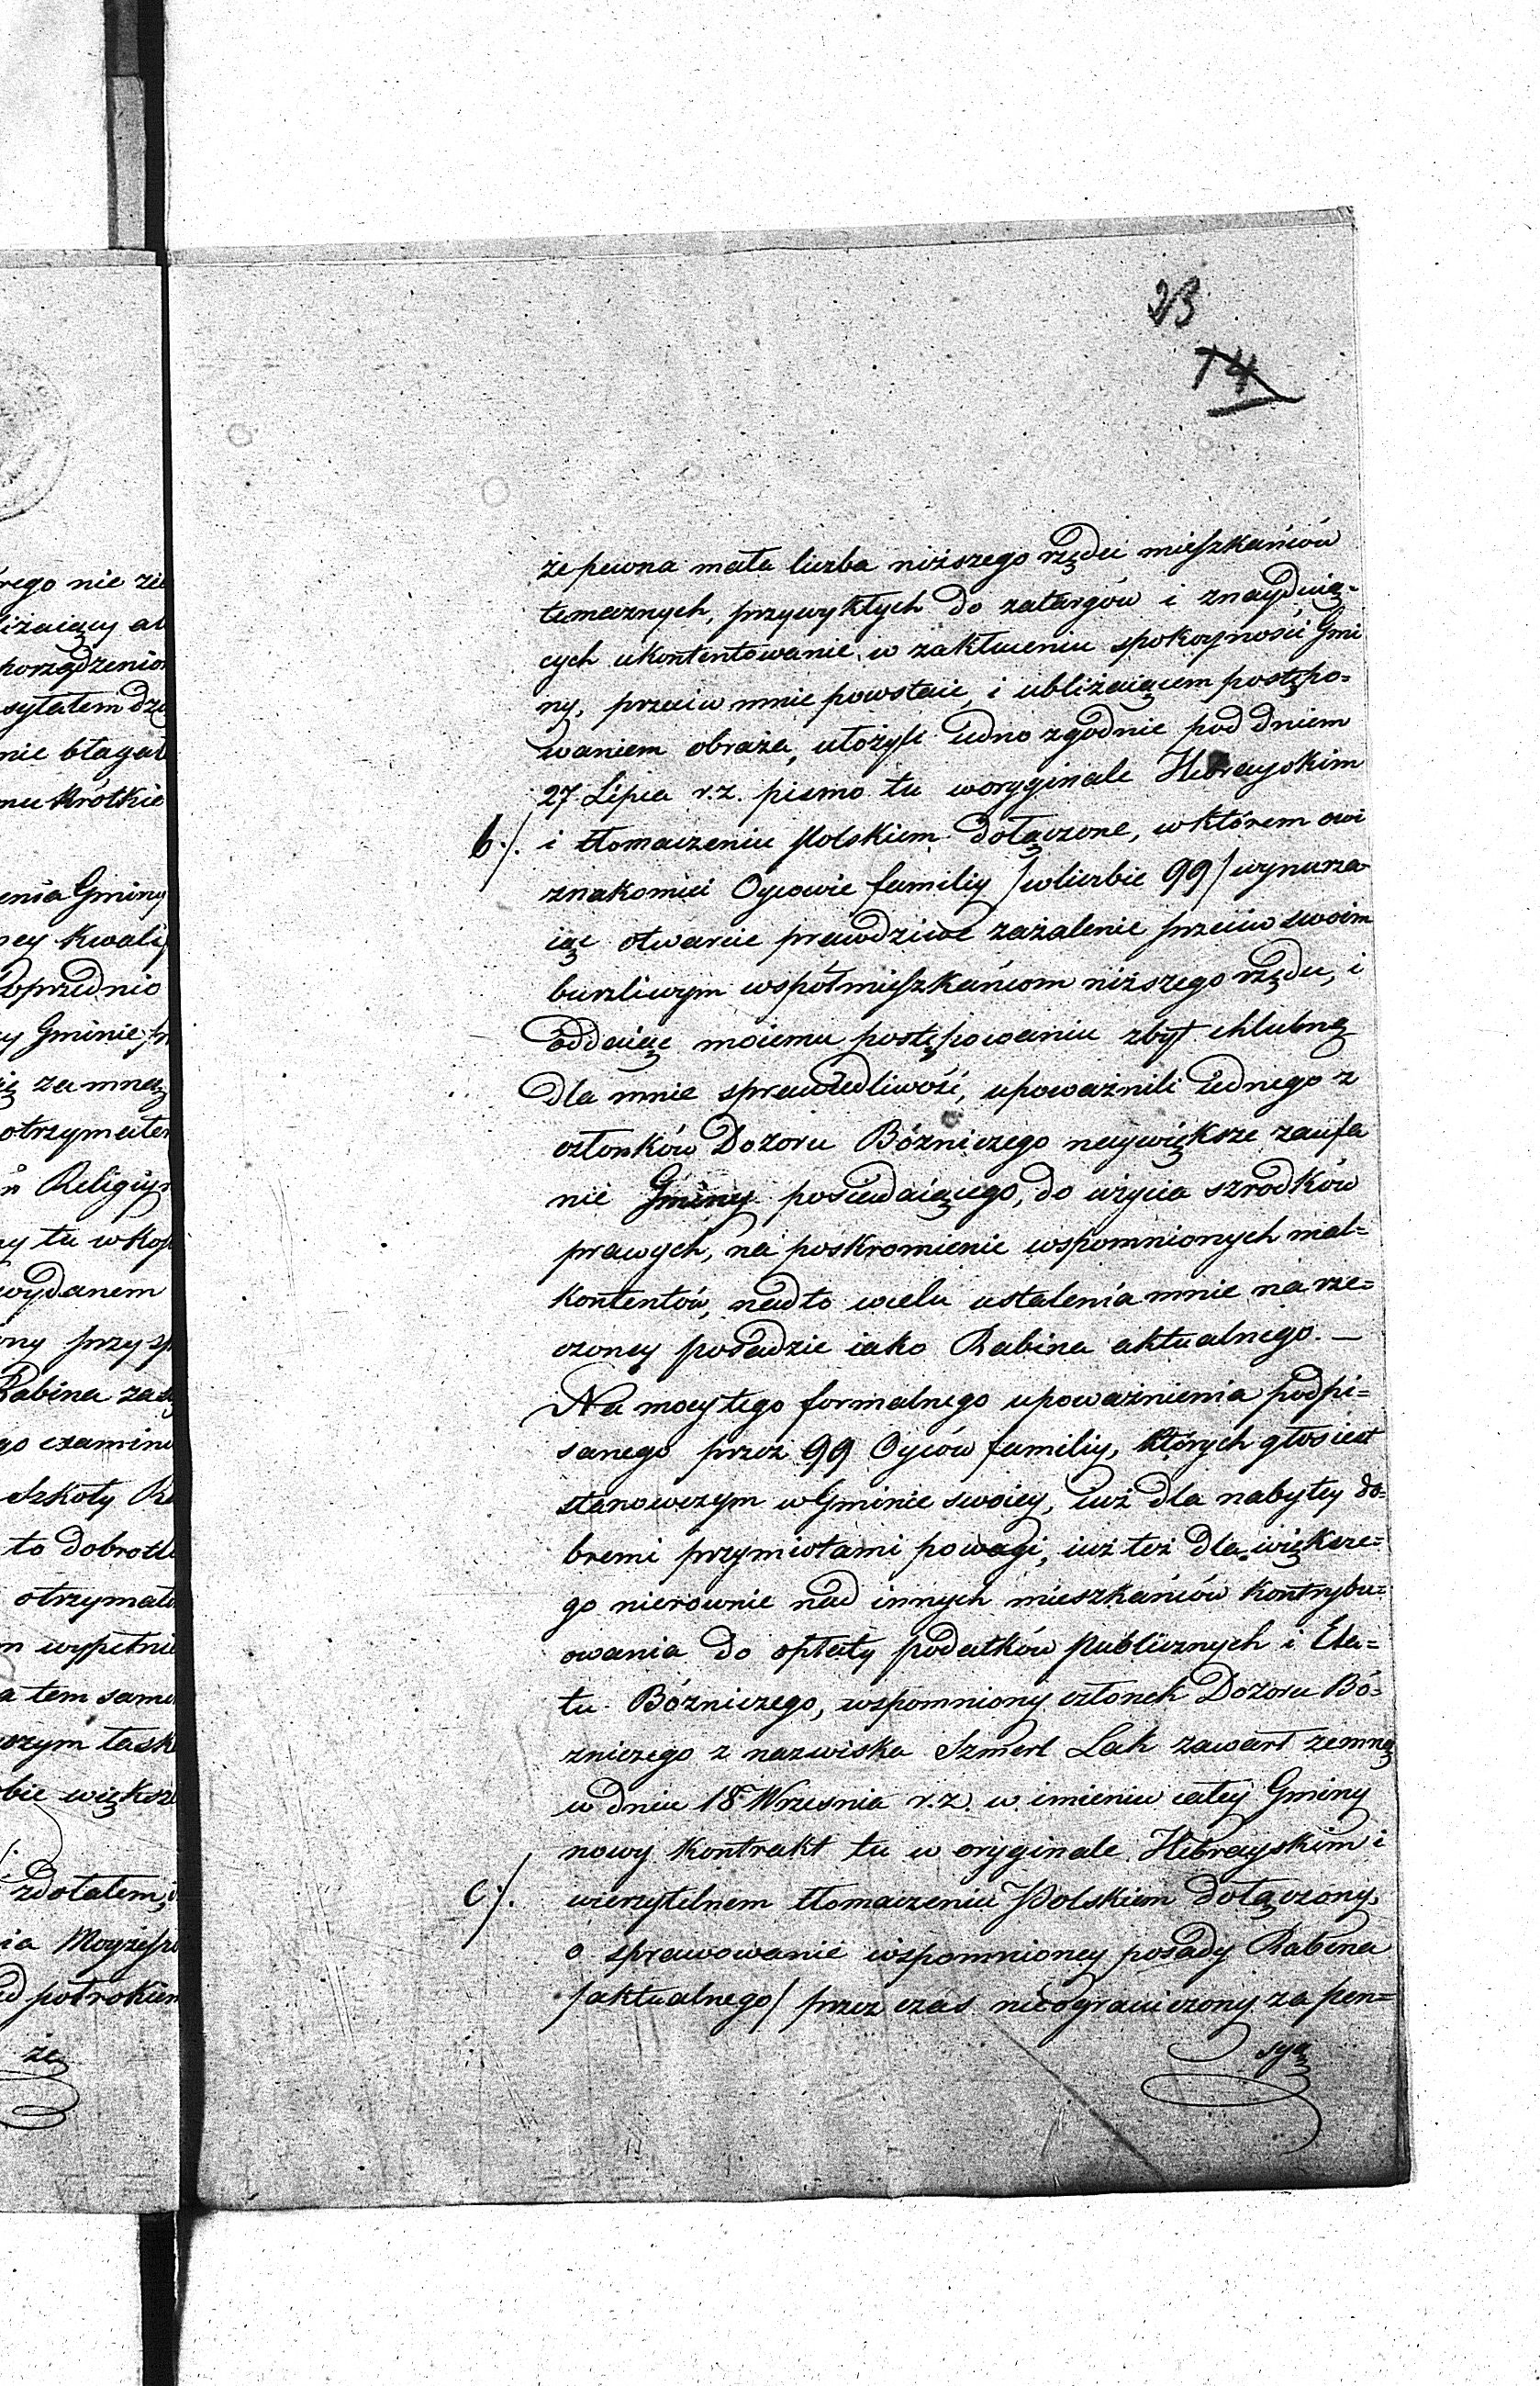 23
14
że pewna mała liczba niższego rzędu mieszkańców
tamecznych, przywykłych do zatargów i znayduią-
cych ukontentowanie w zakłuceniu spokoyności Gmi
ny, przeciw mnie powstaie, i ubliżaiącem postępo=
waniem obraża, ułożyli iedno zgodnie pod dniem
27 Lipca r.z. pismo tu w oryginale Hebrayskim
b/. i tłomaczeniu Polskiem dołączone, w którem owi
znakomici Oycowie familiy /w liczbie 99/ wynurza
iąc otwarcie prawdziwe zażalenie przeciw swoim
burzliwym współmieszkańcom niższego rzędu, i
oddaiąc moiemu postępowaniu zbyt chlubną
dla mnie sprawiedliwość, upoważnili iednego z
członków Dozoru Bózniczego naywiększe zaufa
nie Gminy posiadaiącego, do użycia szrodków
prawych, na poskromienie wspomnionych mal=
kontentów, nadto celu ustalenia mnie na rze=
czoney posadzie iako Rabina aktualnego. —
Na mocy tego formalnego upoważnienia podpi=
sanego przez 99 Oyców familiy, których głos iest
stanowczym w Gminie swoiey, iuż dla nabytey do=
bremi przymiotami powagi, iuż też dla większe=
go nierownie nad innych mieszkańców kontrybu=
owania do opłaty podatków publicznych i Eta=
tu Bózniczego, wspomniony członek Dozoru Bó=
zniczego z nazwiska Szmerl Lak zawarł zemną
w dniu 18 Września r.z. w imieniu całey Gminy
nowy kontrakt tu w oryginale Hebrayskim i
c/. wierzytelnem tłomaczeniu Polskiem dołączony,
o sprawowanie wspomnioney posady Rabina
/aktualnego/ przez czas nieograniczony za pen=
syą